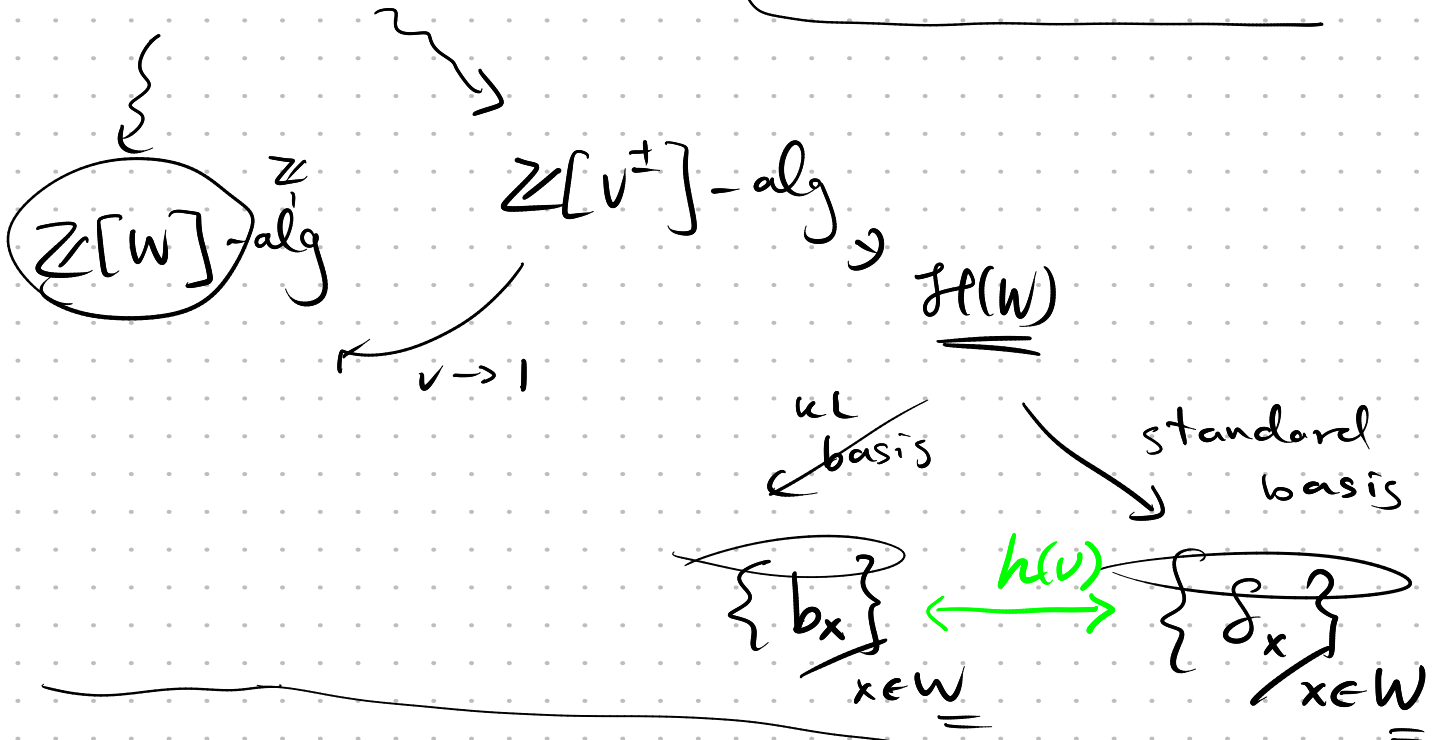 ℤ
ℤ[W]-alg
ℤ[v^±]-alg
H(W)
v → 1
KL
basis
standard
basis
h(v)
{b_x}
x ∈ W
{δ_x}
x ∈ W